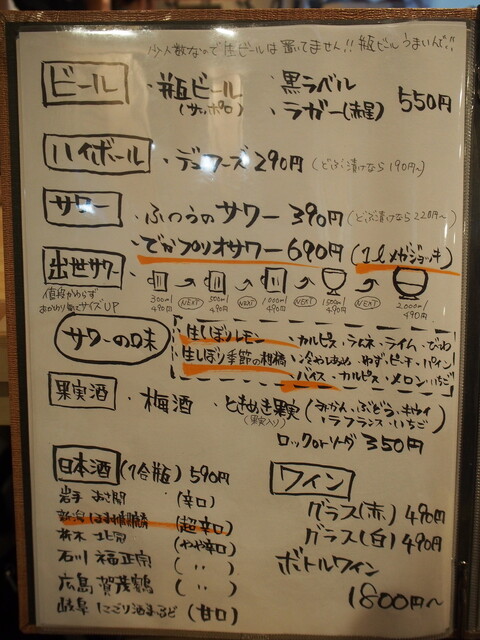 少人数なので生ビールは置いてません!! 瓶ビールうまいんで!!
ビール ・瓶ビール (サッポロ) ・黒ラベル ・ラガー(赤星) 550円
ハイボール ・デュワーズ 290円 (どぶ漬けなら190円〜)
サワー ・ふつうのサワー 390円 (どぶ漬けなら220円〜)
・でかプリオサワー 690円 (1ℓメガジョッキ)
出世サワー 300ml 490円 NEXT 500ml 490円 NEXT 1000ml 490円 NEXT 1500ml 490円 NEXT 2000ml 490円
値段かわらず
おかわり毎でサイズUP
サワーの味
生しぼりレモン ・カルピス・ラムネ・ライム・びわ
生しぼり季節の柑橘 ・冷やしあめ・ゆず・ピーチ・パイン
・バイス・カルピス・メロン・いちご
果実酒 ・梅酒 ・ときめき果実 (果実入り) (みかん・ぶどう・キウイ
・ラフランス・いちご)
ロックorソーダ 350円
日本酒 (1合瓶) 590円
岩手 (辛口)
新潟 (超辛口)
栃木 (やや辛口)
石川 福正宗 (〃)
広島 賀茂鶴 (〃)
岐阜 にごり酒 (甘口)
ワイン
グラス(赤) 490円
グラス(白) 490円
ボトルワイン
1800円〜